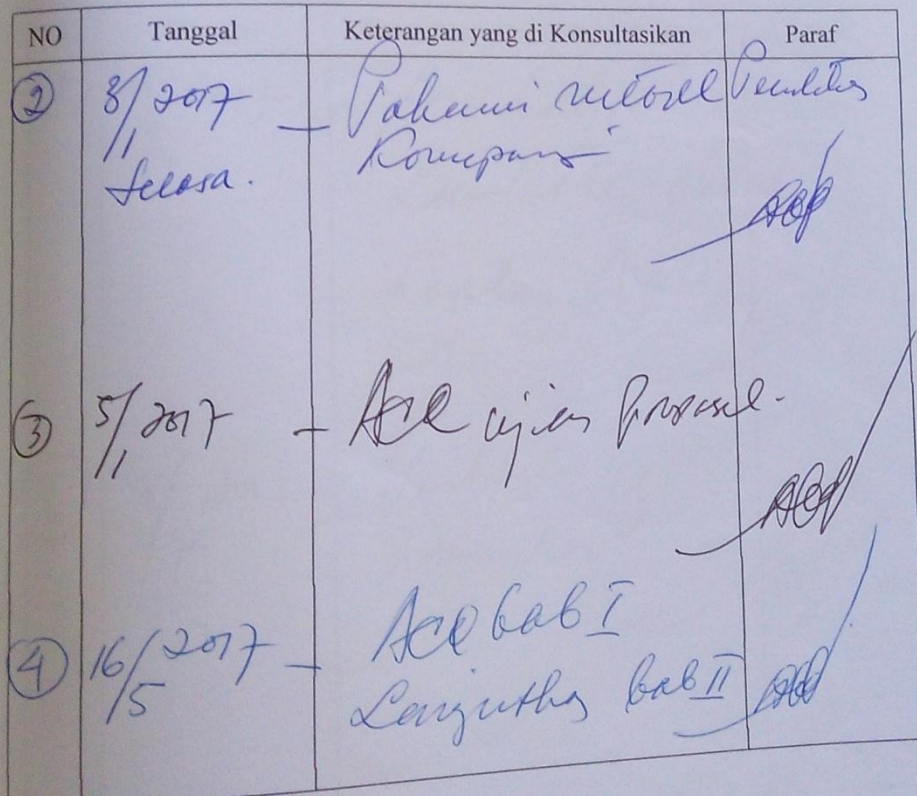 NO Tanggal Keterangan yang di Konsultasikan Paraf
② 3/1 2017 – Pahami metode Penelitian
Selasa. Komparasi
③ 5/1 2017 – Acc ujian Proposal.
④ 16/5 2017 – Acc bab I
Lanjutkan bab II